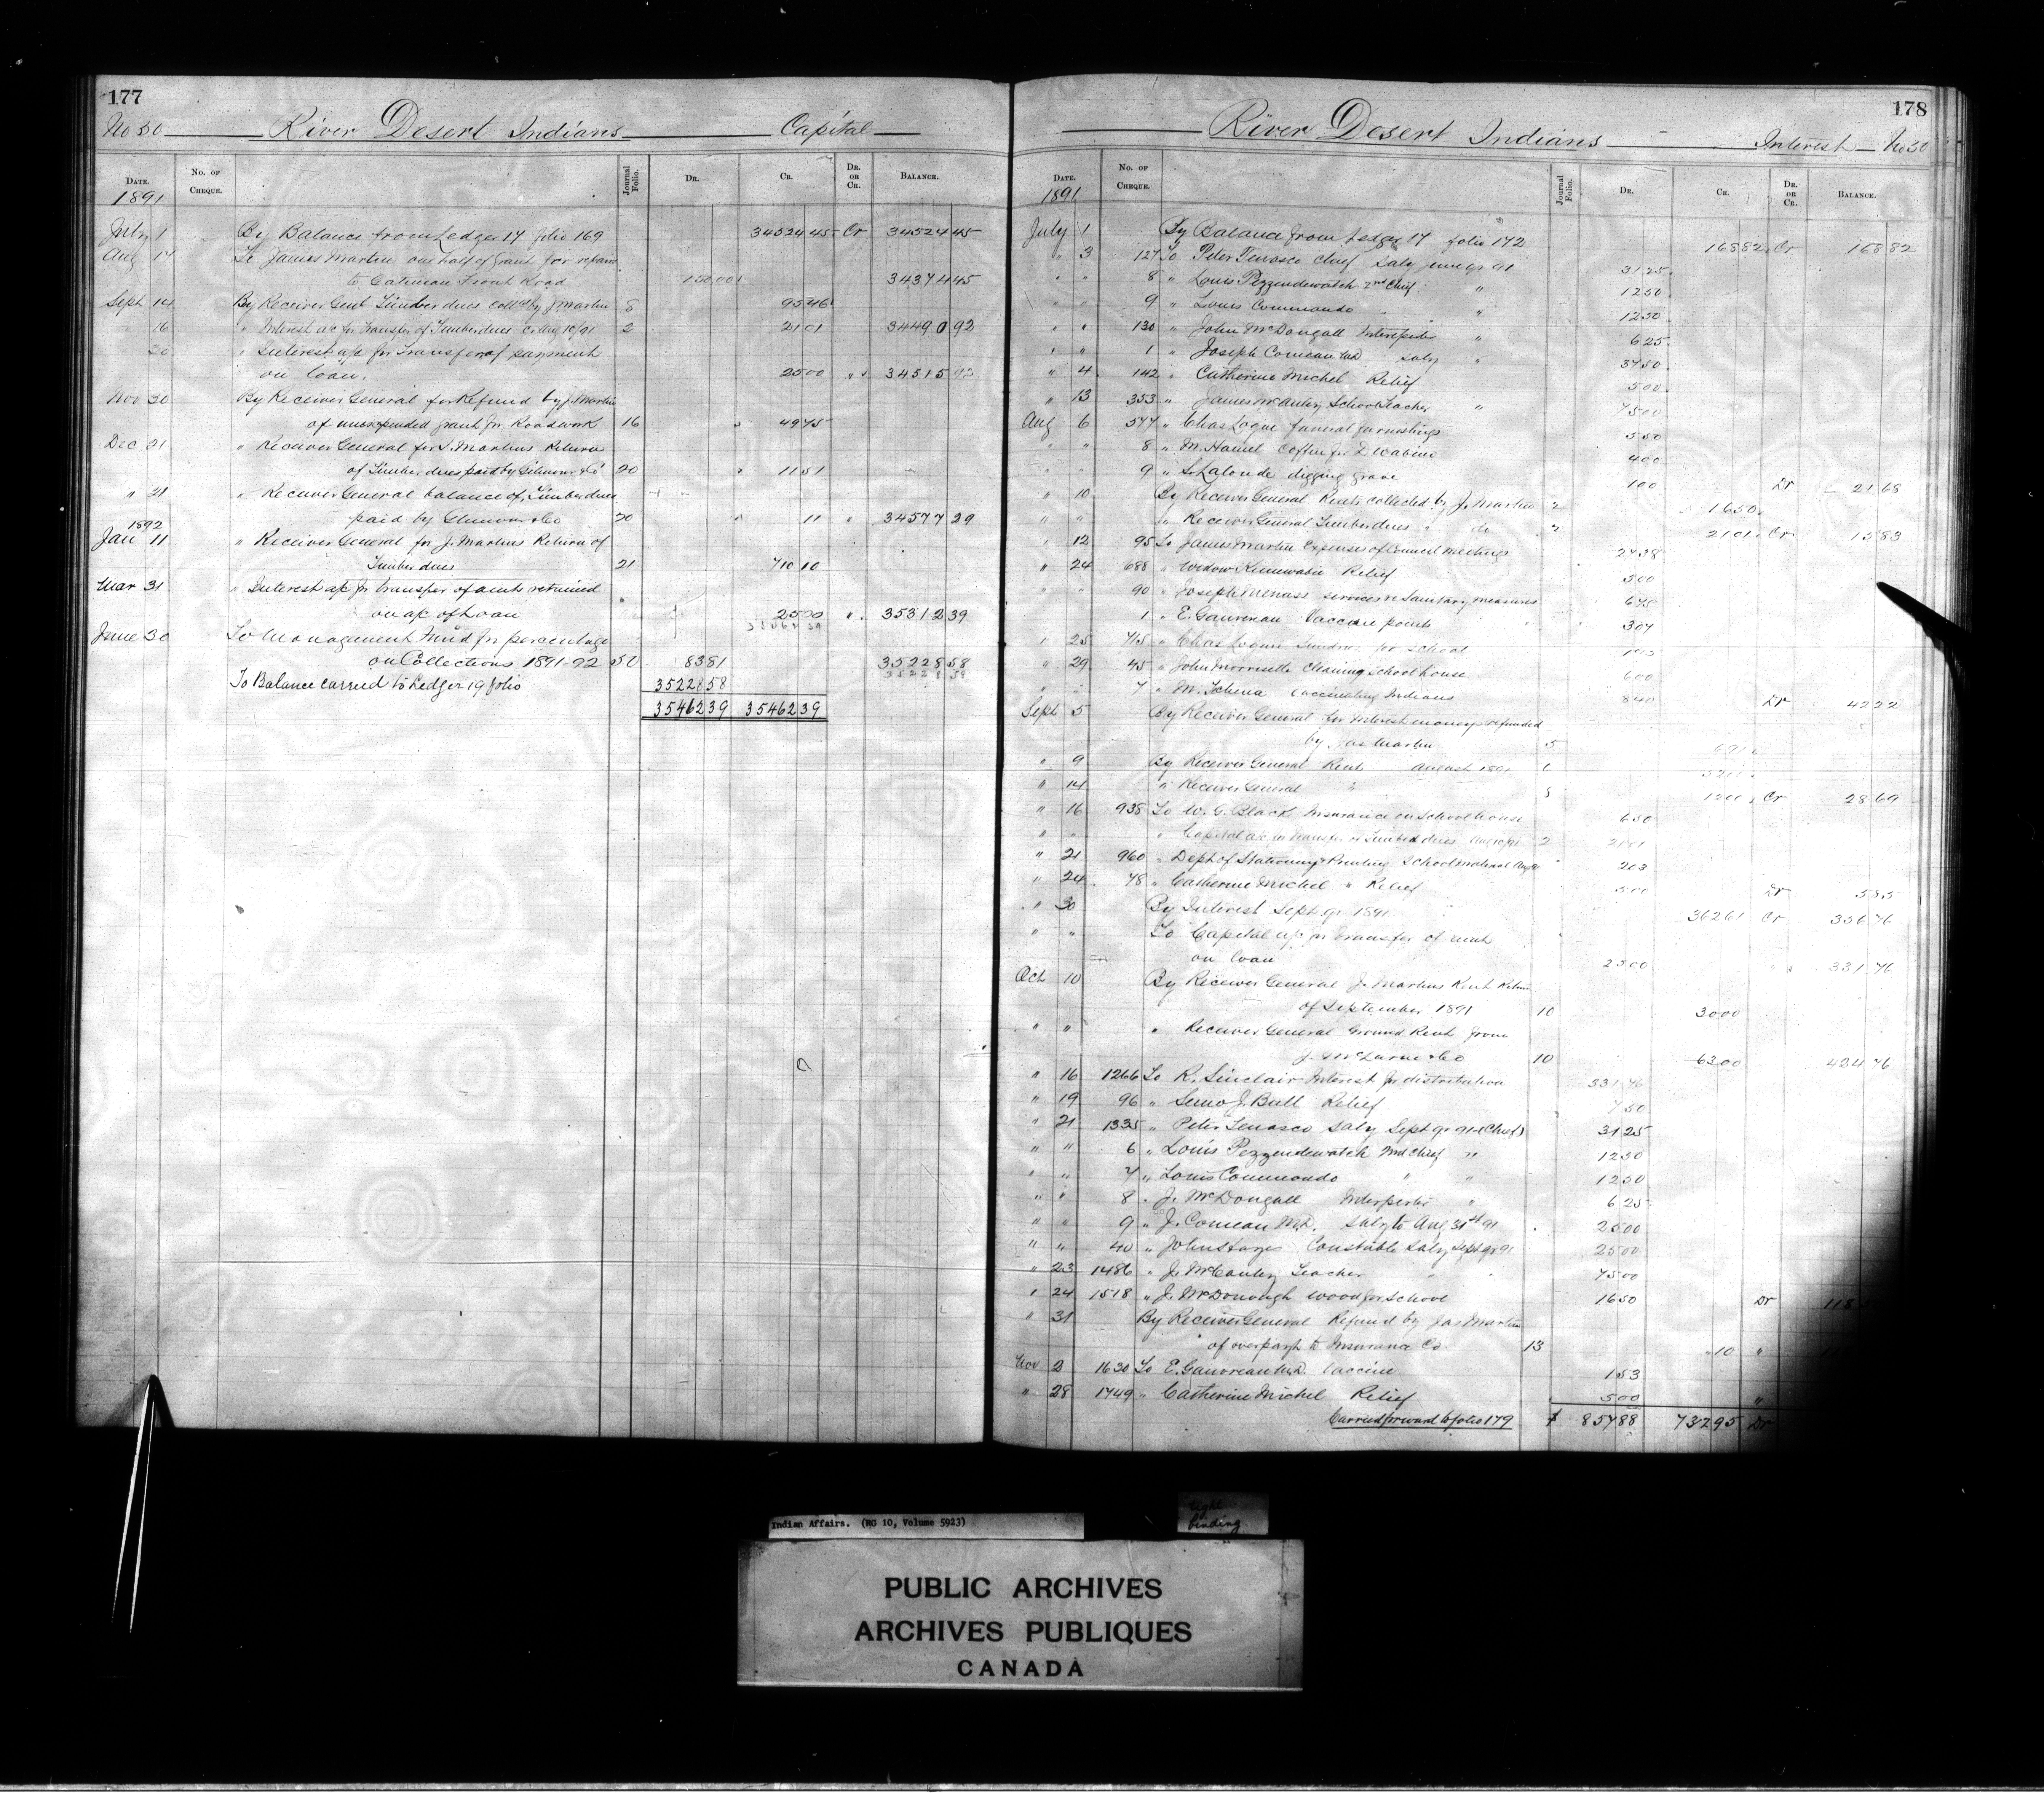 177
No 50 River Desert Indians Capital
DATE. No. OF CHEQUE. Journal Folio. DR. CR. DR. OR CR. BALANCE.
1891
July 1 By Balance from Ledger 17 folio 169 34524 45 Cr 34524 45
Aug 17 To James Martin one half of Grant for repairs
to Gatineau Front Road 150 00 34374 45
Sept 14 By Receiver Genl Timber dues coll'd by J. Martin 8 95 46
16 " Interest a/c for transfer of Timber dues Aug 10/91 2 21 01 34490 92
30 " Interest a/c for Transfer of payment
on loan. 25 00 " 34515 92
Nov 30 By Receiver General for Refund by J. Martin
of unexpended grant for Roadwork 16 49 75
Dec 21 " Receiver General for J. Martins Return
of Timber dues paid by Gilmour & Co 20 11 51
" 21 " Receiver General balance of Timber dues
paid by Gilmour & Co 20 11 " 34577 29
1892
Jan 11 " Receiver General for J. Martins Return of
Timber dues 21 710 10
Mar 31 " Interest a/c for transfer of amt retained
on a/c of Loan 25 00 " 35312 39
June 30 To Management Fund for percentage
on Collections 1891-92 50 83 81 35228 58
To Balance carried to Ledger 19 folio 35228 58
35462 39 35462 39
178
River Desert Indians Interest No 50
DATE. No. OF CHEQUE. Journal Folio. DR. CR. DR. OR CR. BALANCE.
1891
July 1 By Balance from Ledger 17 folio 172 168 82 Cr 168 82
" 3 127 To Peter Tenasco Chief Saly June qr 91 31 25
" " 8 " Louis Pezzendewatch 2nd Chief " 12 50
" " 9 " Louis Commondo " " 12 50
" " 130 " John McDougall Interpeter " 6 25
" " 1 " Joseph Comeau MD Saly " 37 50
" 4 142 " Catherine Michel Relief 5 00
" 13 353 " James McAuley School Teacher " 75 00
Aug 6 577 " Chas Logue funeral furnishings 5 50
" " 8 " M. Hamel coffin for D Wabine 4 00
" " 9 " S. Lalonde digging grave 1 00 Dr 21 68
" 10 By Receiver General Rents collected by J. Martin 2 16 50
" " " Receiver General Timber dues " do " 2 21 01 Cr 15 83
" 12 95 To James Martin Expenses of Council meetings 27 38
" 24 688 " Widow Relief 5 00
" " 90 " Joseph Menass services re Sanitary measures 6 75
" " 1 " E. Gauvreau Vaccine points 3 07
" 25 715 " Chas Logue Sundries for School
" 29 45 " John Morrisette Cleaning School house 6 00
" " 7 " M. vaccinating Indians 8 40 Dr 42 22
Sept 5 By Receiver General for Interest moneys refunded
by Jas Martin 5 6 91
" 9 By Receiver General Rents August 1891 6
" 14 " Receiver General " 8 12 00 Cr 28 69
" 16 938 To W. G. Black Insurance on School house 6 50
" " " Capital a/c for transfer of Timber dues Aug 10/91 2 21 01
" 21 960 " Dept of Stationery & Printing School material Aug 91 2 03
" 24 78 " Catherine Michel " Relief 5 00 Dr 5 85
" 30 By Interest Sept qr 1891 362 61 Cr 356 76
" " To Capital a/c for transfer of amt
on loan 25 00 331 76
Oct 10 By Receiver General J. Martins Rent Return
of September 1891 10 30 00
" " " Receiver General Ground Rent from
J. McLaren & Co 10 63 00 424 76
" 16 1266 To R. Sinclair Interest for distribution 331 76
" 19 96 " J. Bull Relief 7 50
" 21 1335 " Peter Tenasco Saly Sept qr 91 (Chief) 31 25
" " 6 " Louis Pezzendewatch 2nd Chief " 12 50
" " 7 " Louis Commondo " " 12 50
" " 8 " J. McDougall Interpeter " 6 25
" " 9 " J. Comeau M.D. Saly to Aug 31st 91 25 00
" " 40 " John Constable Saly Sept qr 91 25 00
" 23 1486 " J. McCauley Teacher " " 75 00
" 24 1518 " J. McDonough Wood for School 16 50 Dr 118
" 31 By Receiver General Refund by Jas Martin
of overpayt to Insurance Co 13 10 "
Nov 2 1630 To E. Gauvreau M.D. Vaccine 1 53
" 28 1749 " Catherine Michel Relief 5 00 "
Carried forward to folio 179 $ 857 88 732 95 Dr
Indian Affairs. (RG 10, Volume 5923)
tight
binding
PUBLIC ARCHIVES
ARCHIVES PUBLIQUES
CANADA